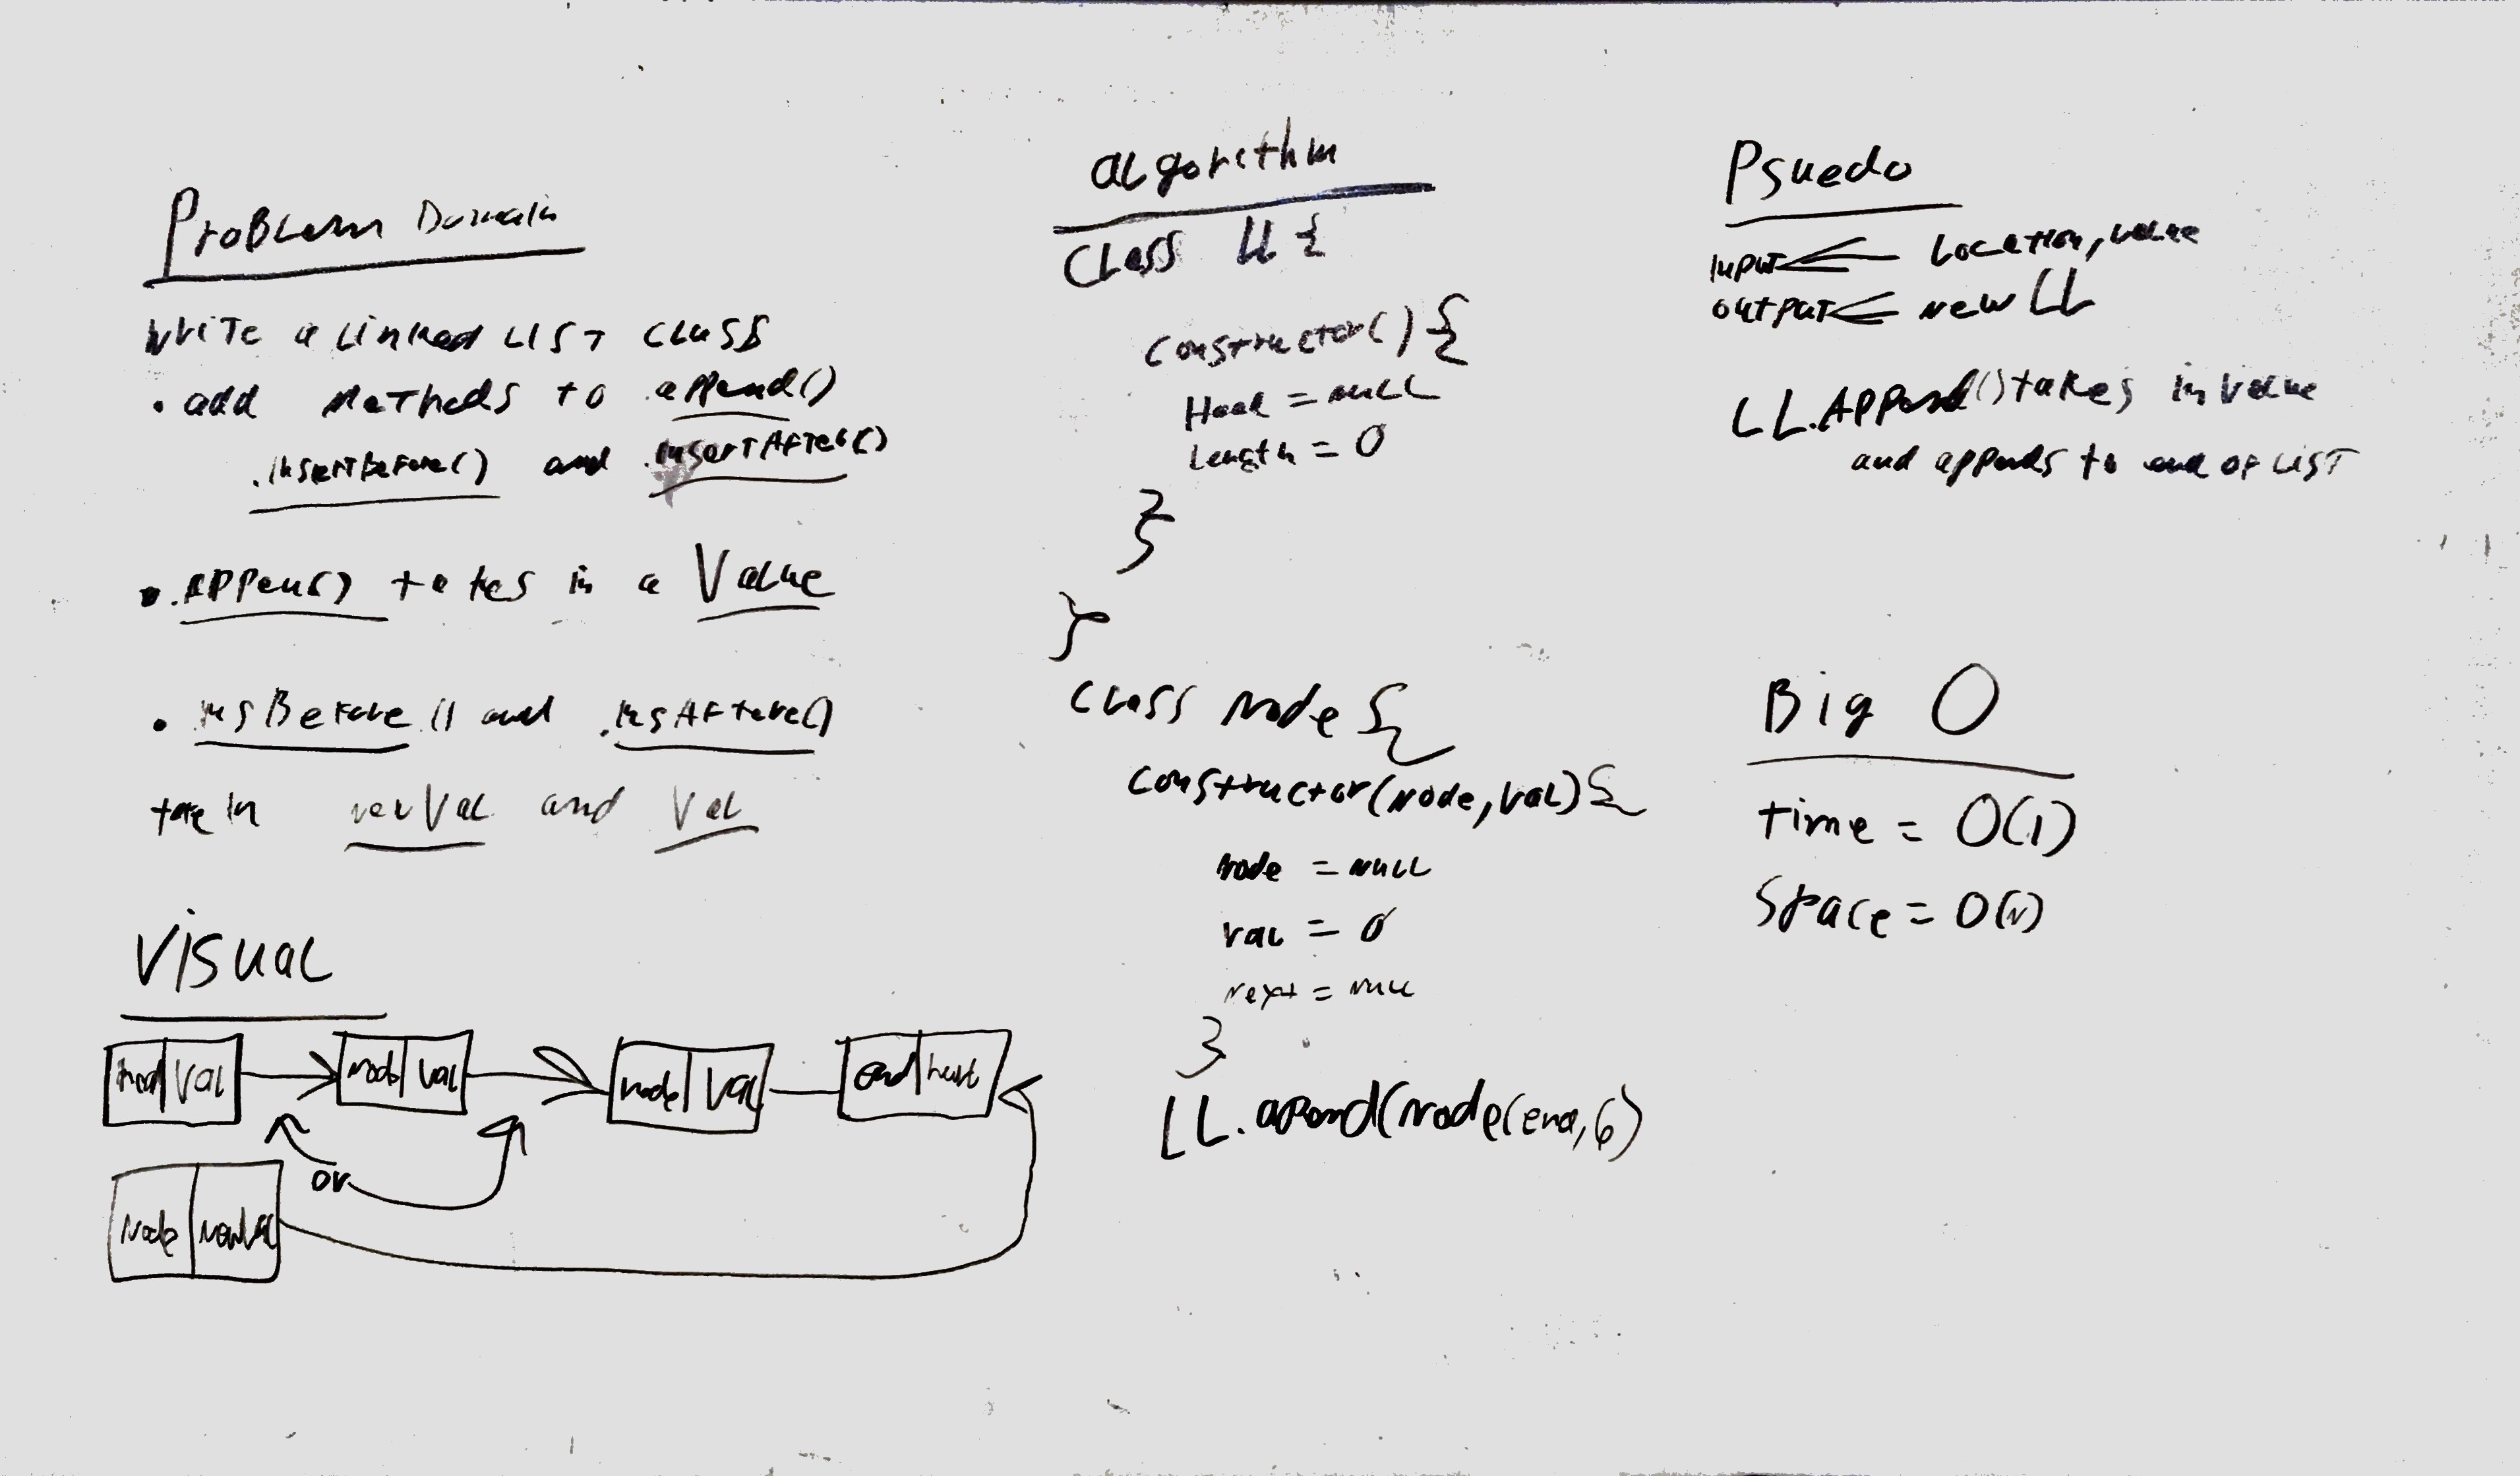 Problem Domain
Write a Linked List class
• add Methods to .append()
.insertBefore() and .insertAfter()
• .append() takes in a Value
• .insBefore() and .insAfter()
take in newVal and Val
Visual
Head Val
Node Val
Node Val
End
or
Node NewVal
algorithm
Class LL {
Constructor() {
Head = null
Length = 0
}
}
Class Node {
constructor(Node, Val) {
Node = null
val = 0
next = null
}
LL.apend(Node(end, 6)
Psuedo
input Location, value
output new LL
LL.Append() takes in value
and appends to end of List
Big O
time = O(1)
Space = O(N)